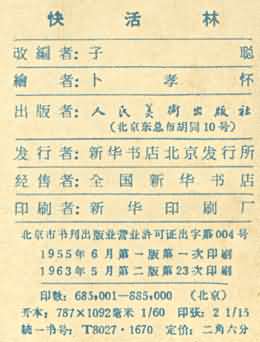 快活林
改編者:子聪
繪者:卜孝怀
出版者:人民美術出版社
(北京东总布胡同10号)
发行者:新华书店北京发行所
经售者:全国新华书店
印刷者:新华印刷厂
北京市书刊出版业营业許可証出字第004号
1955年6月第一版第一次印刷
1963年5月第二版第23次印刷
印数:685,001—885,000 (北京)
开本:787×1092毫米 1/60 印張:2 1/15
統一书号:T8027·1670 定价:二角六分